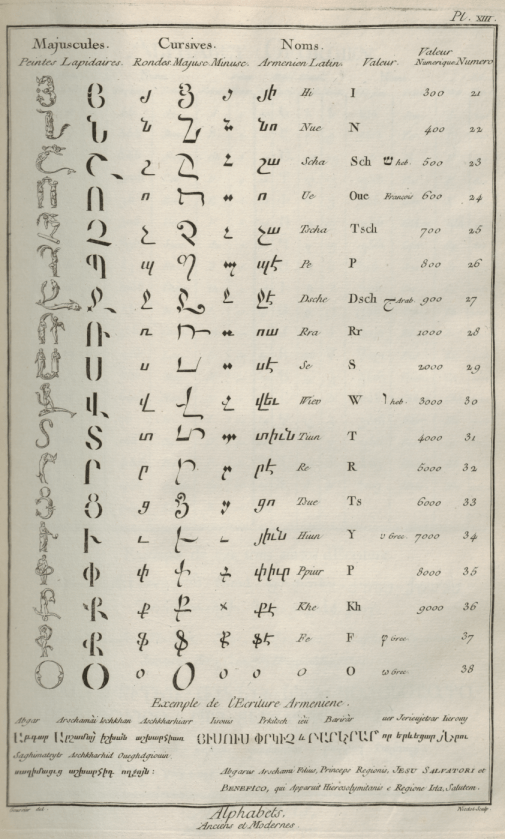 Pl. XIII.
Majuscules. Cursives. Noms.
Peintes Lapidaires. Rondes. Majusc. Minusc. Armenien Latin. Valeur. Valeur Numerique Numero
Յ յ Յ յ յի Hi I 300 21
Ն ն Ն նո Nue N 400 22
Շ շ Շ շ շա Scha Sch ש heb. 500 23
Ո ո Ո ո Ue Oue Francois 600 24
Չ չ Չ չ չա Tscha Tsch 700 25
Պ պ Պ պ պէ Pe P 800 26
Ջ ջ Ջ ջ ջէ Dsche Dsch ج Arab. 900 27
Ռ ռ Ռ ռա Rra Rr 1000 28
Ս ս Ս սէ Se S 2000 29
Վ վ Վ վ վեւ Wiev W ו heb. 3000 30
Տ տ Տ տ տիւն Tiun T 4000 31
Ր ր Ր ր րէ Re R 5000 32
Ց ց Ց ց ցո Tsue Ts 6000 33
Ւ ւ Ւ ւ յիւն Hiun Y υ Grec. 7000 34
Փ փ Փ փ փիւր Ppiur P 8000 35
Ք ք Ք ք քէ Khe Kh 9000 36
Ֆ ֆ Ֆ ֆ ֆէ Fe F φ Grec. 37
Օ օ Օ օ օ O O ω Grec. 38
Exemple de l'Ecriture Armeniene.
Abgar Arschamai Ischkhan Aschkharhiarr Iisousi Prkitsch ieu Barirár
Աբգար Արշամայ իշխան աշխարհիառ ՅԻՍՈՒՍ ՓՐԿԻՉ և ԲԱՐԵՐԱՐ որ երևեցար
Saghimatsyts Aschkharhid Oueghdgioun.
Abgarus Arschami Filius, Princeps Regionis, JESU SALVATORI et
BENEFICO, qui Apparuit Hierosolymitanis e Regione Ista, Salutem.
Alphabets,
Anciens et Modernes.